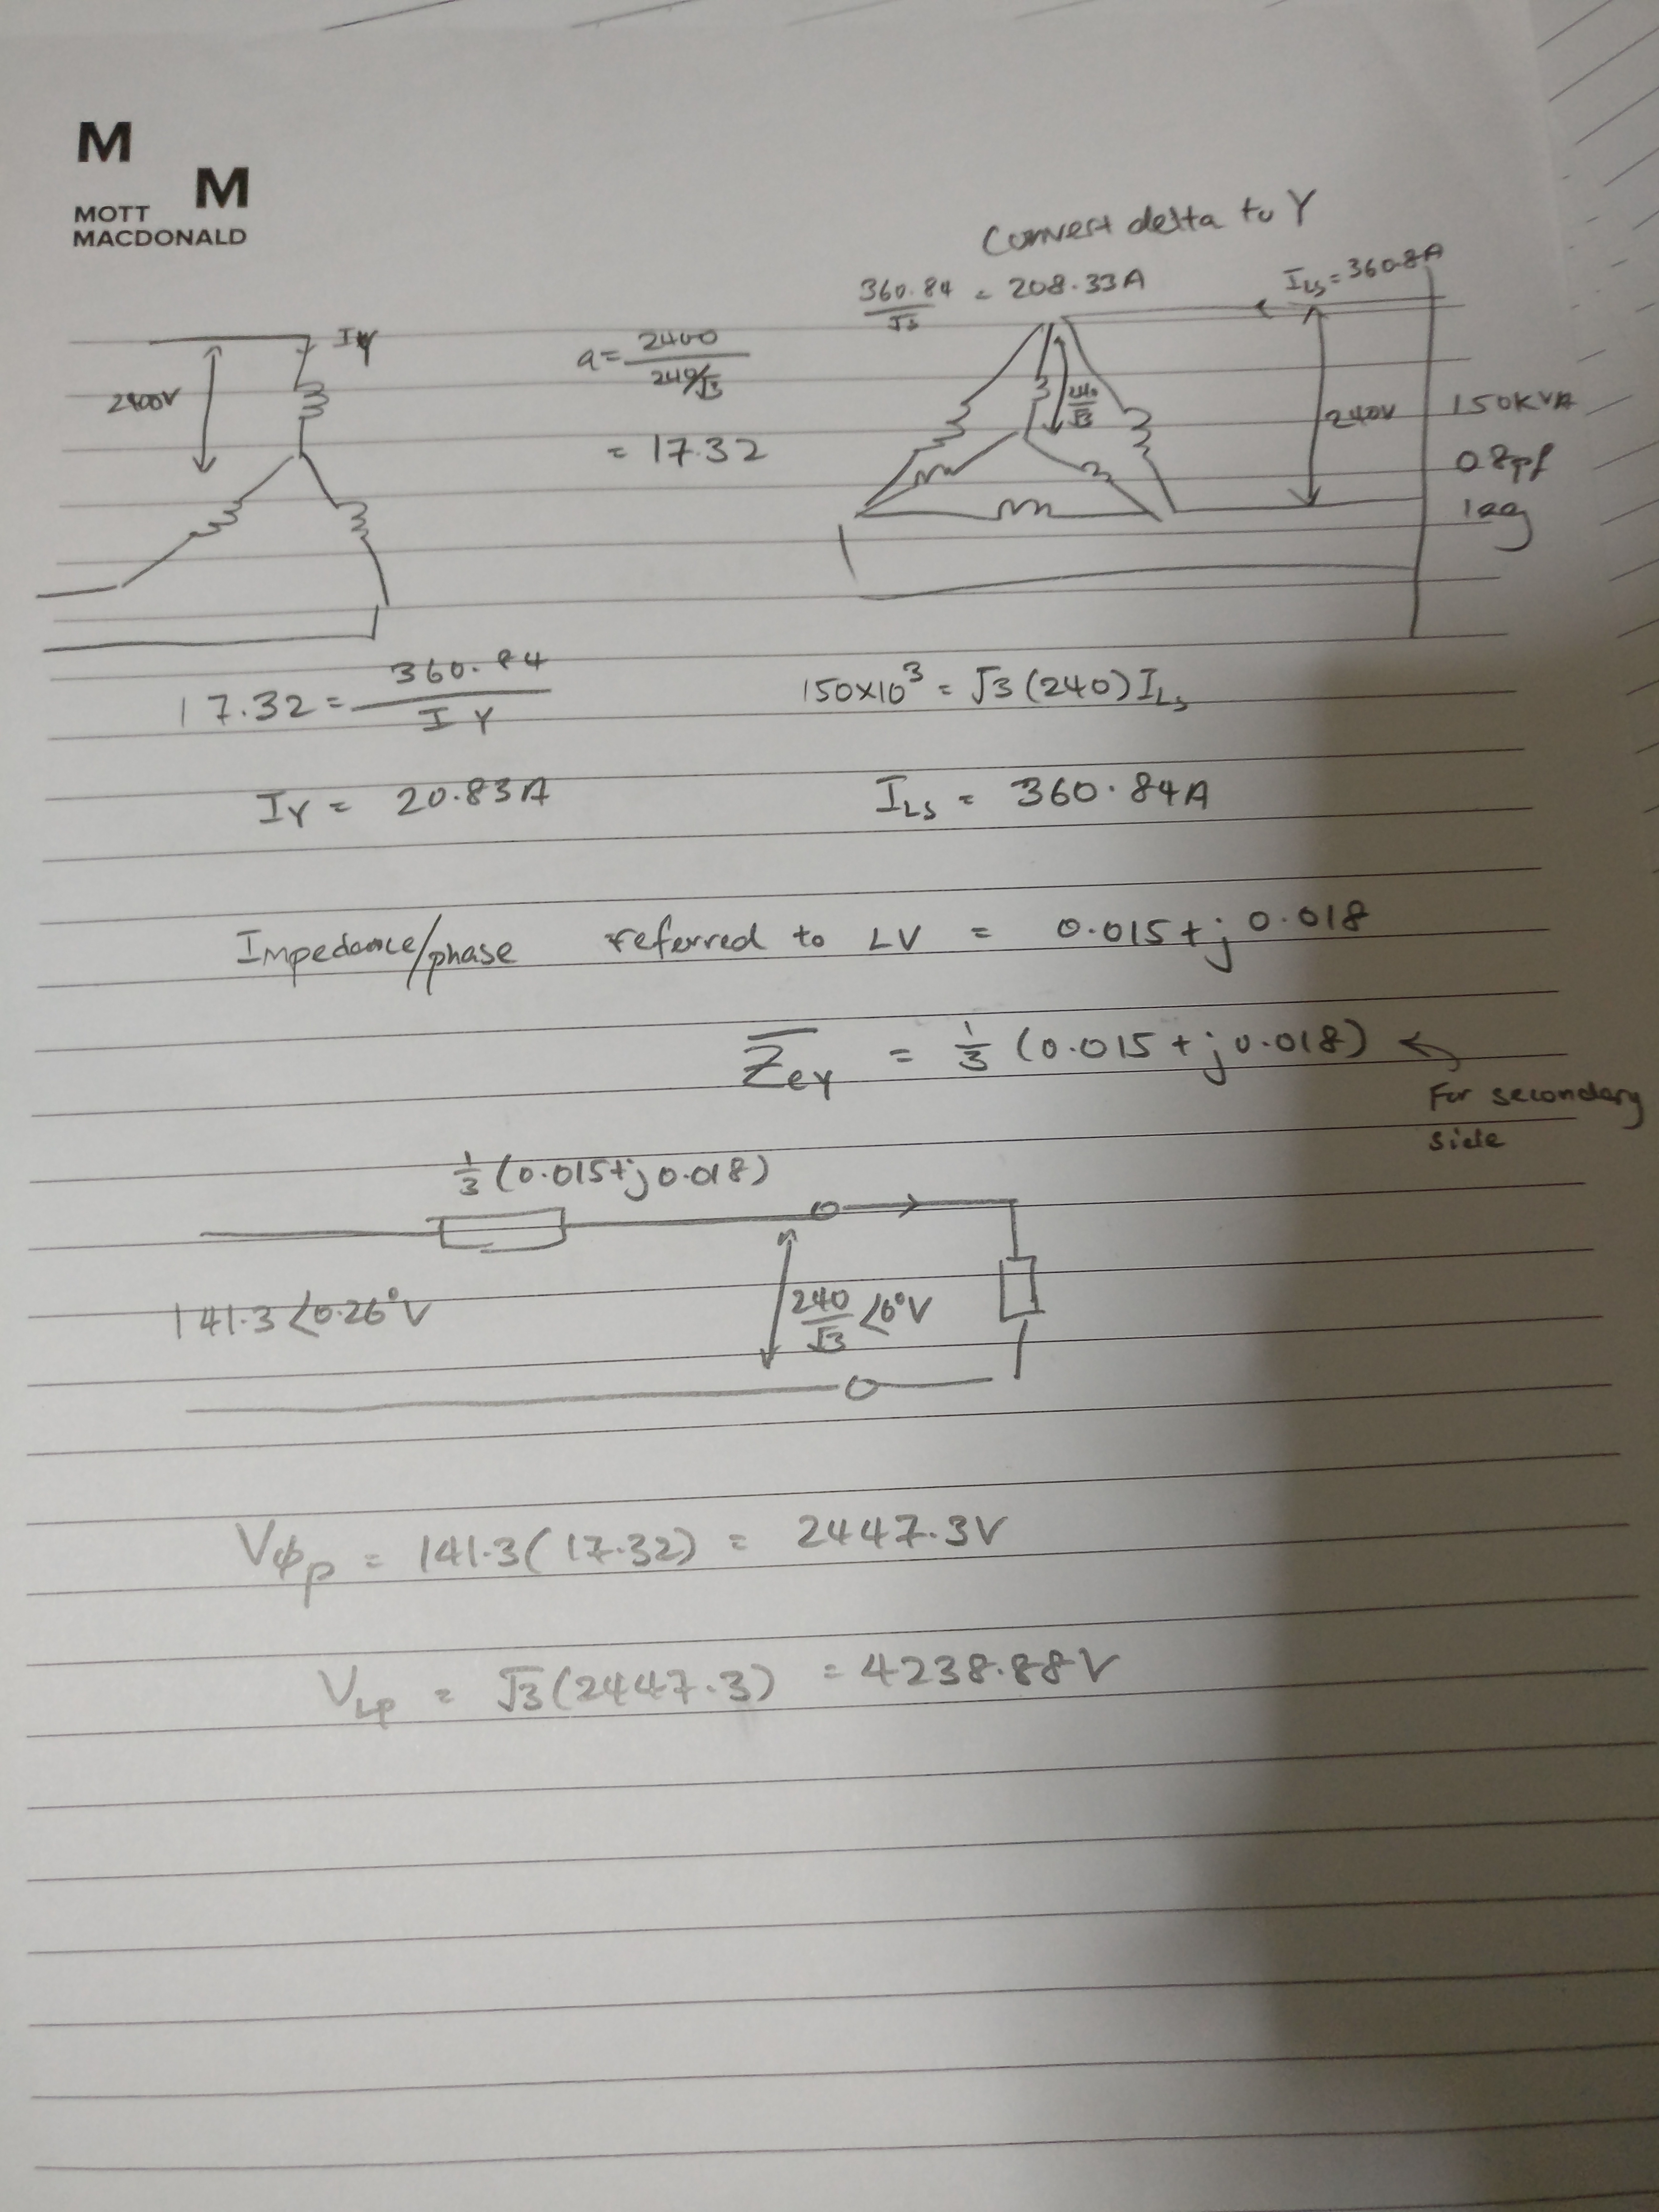 M
M
MOTT
MACDONALD
Convert delta to Y
360.84/√3 = 208.33A
I_LS = 360.8A
I_Y
2400V
a = 2400/(240/√3)
= 17.32
240/√3
240V
150KVA
0.8pf
lag
17.32 = 360.84/I_Y
150x10³ = √3(240)I_LS
I_Y = 20.83A
I_LS = 360.84A
Impedance/phase referred to LV = 0.015+j0.018
Z̅_eY = 1/3 (0.015+j0.018) ←
For secondary
side
1/3 (0.015+j0.018)
141.3∠0.26°V
240/√3 ∠0°V
V_ϕp = 141.3(17.32) = 2447.3V
V_Lp = √3(2447.3) = 4238.88V